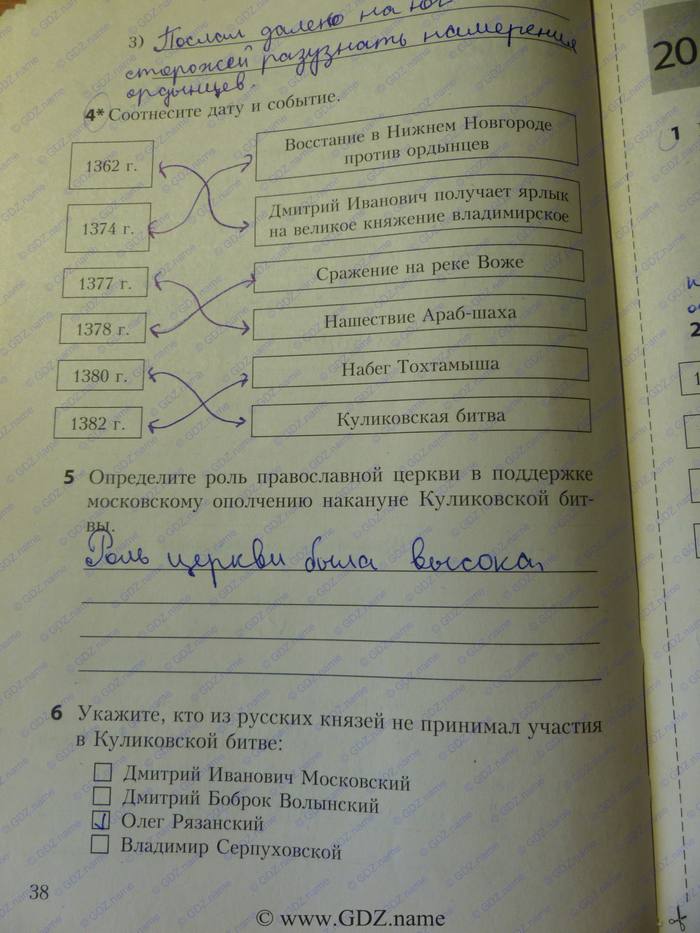 3) Послал далеко на юг
сторожей разузнать намерения
ордынцев.
4* Соотнесите дату и событие.
1362 г.
1374 г.
1377 г.
1378 г.
1380 г.
1382 г.
Восстание в Нижнем Новгороде
против ордынцев
Дмитрий Иванович получает ярлык
на великое княжение владимирское
Сражение на реке Воже
Нашествие Араб-шаха
Набег Тохтамыша
Куликовская битва
5 Определите роль православной церкви в поддержке
московскому ополчению накануне Куликовской бит-
вы.
Роль церкви была высока,
6 Укажите, кто из русских князей не принимал участия
в Куликовской битве:
Дмитрий Иванович Московский
Дмитрий Боброк Волынский
Олег Рязанский
Владимир Серпуховской
38
© www.GDZ.name
20
1
2
1